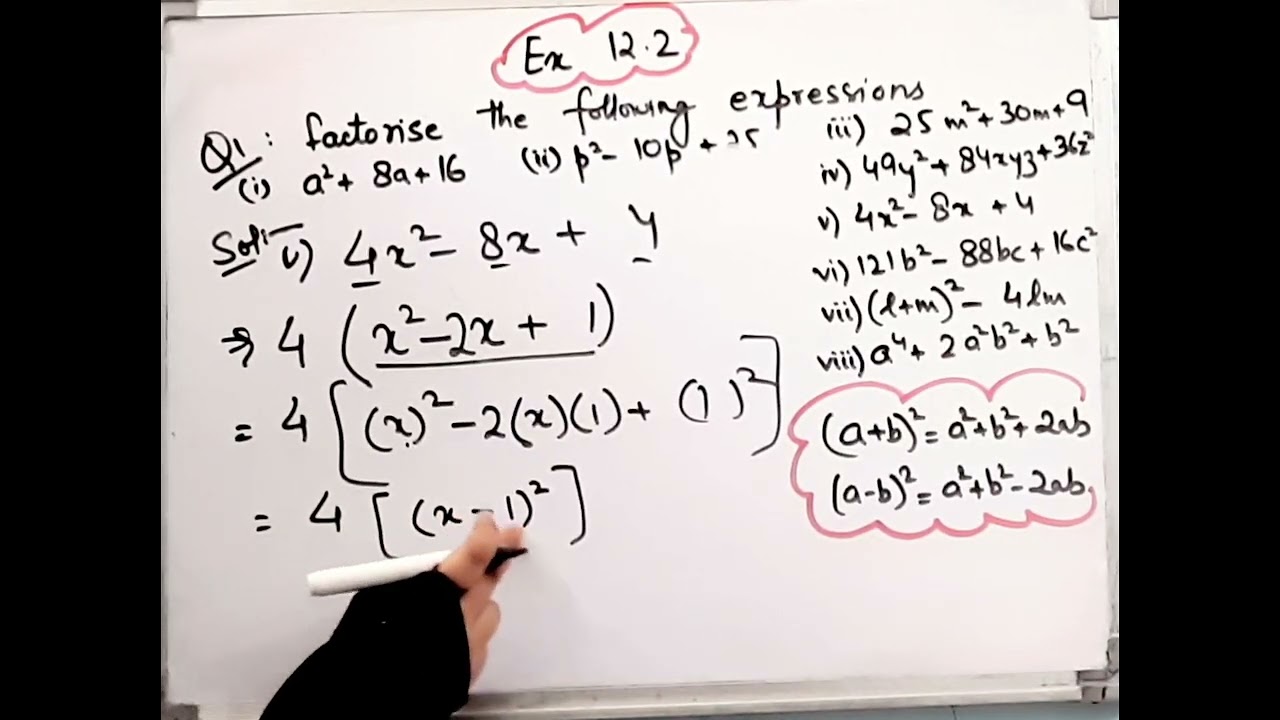 Ex 12.2
Q1: factorise the following expressions
(i) a² + 8a + 16 (ii) p² - 10p + 25
iii) 25m² + 30m + 9
iv) 49y² + 84xyz + 36z²
v) 4x² - 8x + 4
vi) 121b² - 88bc + 16c²
vii) (l+m)² - 4lm
viii) a⁴ + 2a²b² + b²
Sol:- v) 4x² - 8x + 4
⇒ 4 (x² - 2x + 1)
= 4 [(x)² - 2(x)(1) + (1)²]
= 4 [(x - 1)²]
(a+b)² = a² + b² + 2ab
(a-b)² = a² + b² - 2ab